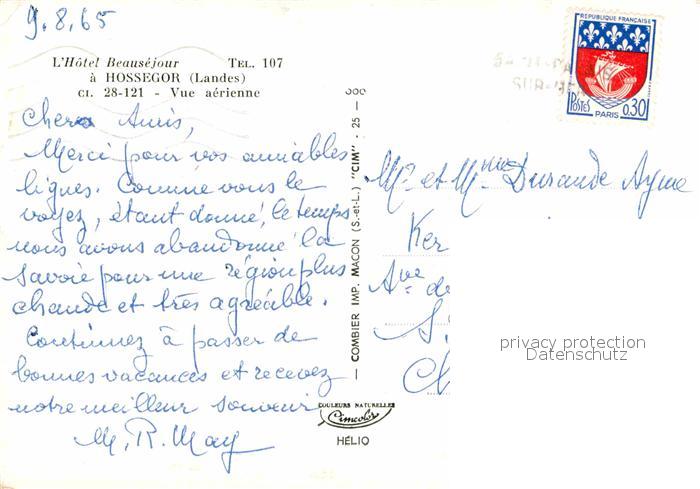 9.8.65
L'Hôtel Beauséjour TEL. 107
à HOSSEGOR (Landes)
CI. 28-121 - Vue aérienne
Chers Amis,
Merci pour vos aimables
lignes. Comme vous le
voyez, étant donné, le temps
nous avons abandonné la
Savoie pour une région plus
chaude et très agréable.
Continuez à passer de
bonnes vacances et recevez
notre meilleur souvenir
M. R. May
COMBIER IMP. MACON (S.-et-L.) "CIM" - 25 -
COULEURS NATURELLES
Cimcolor
HÉLIO
REPUBLIQUE FRANÇAISE
POSTES
0,30
PARIS
SUR-MER
Mr et Mme Durande Ayme
Ker
Ave de
S.
privacy protection
Datenschutz